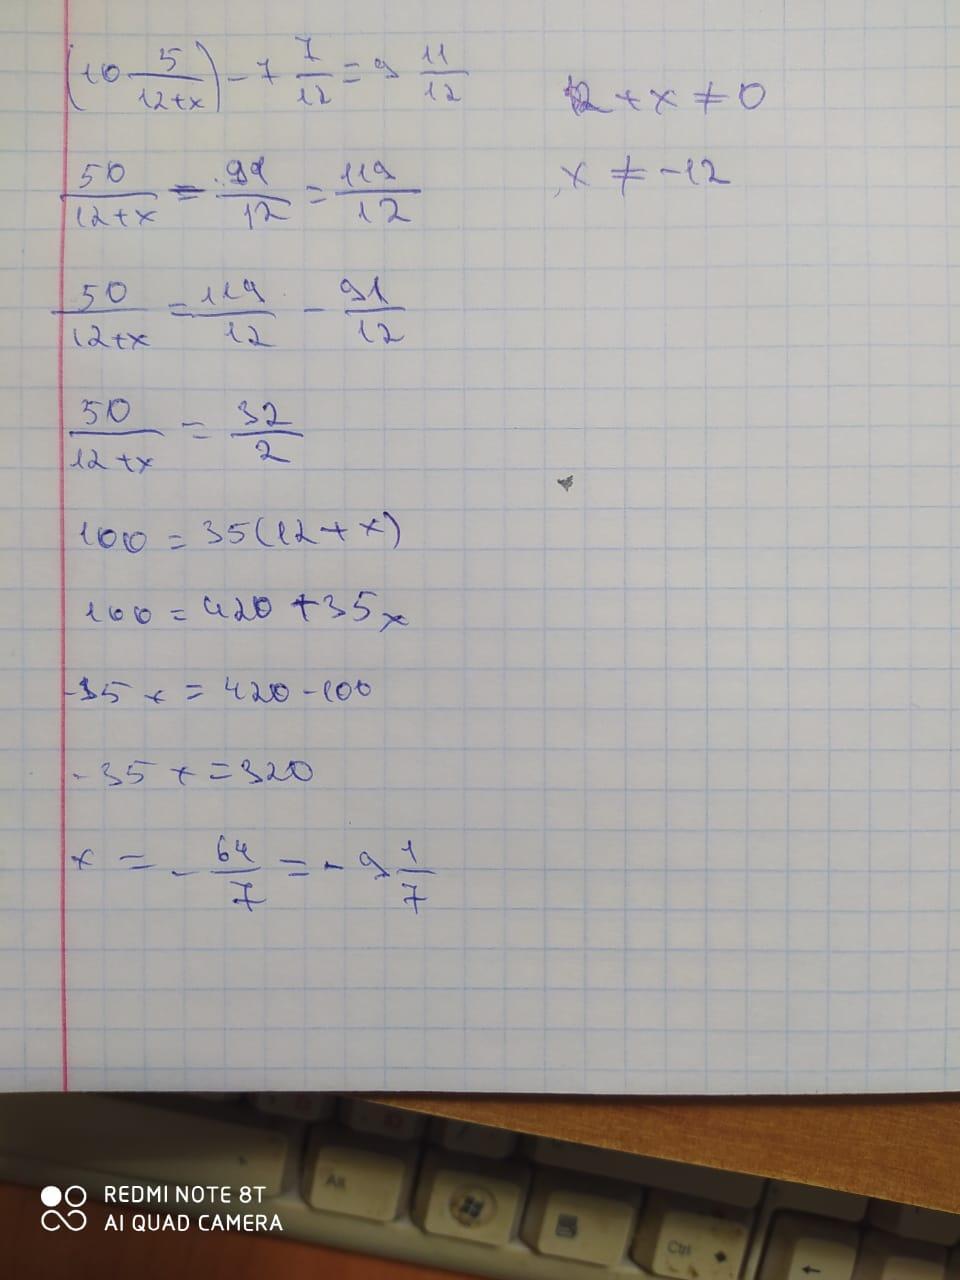 (10 5/(12+x)) - 7 7/12 = 9 11/12
12 + x ≠ 0
x ≠ -12
50/(12+x) - 91/12 = 119/12
50/(12+x) = 119/12 - 91/12
50/(12+x) = 32/2
100 = 35(12+x)
100 = 420 + 35x
-35x = 420 - 100
-35x = 320
x = - 64/7 = - 9 1/7
Alt
Ctrl
REDMI NOTE 8T
AI QUAD CAMERA